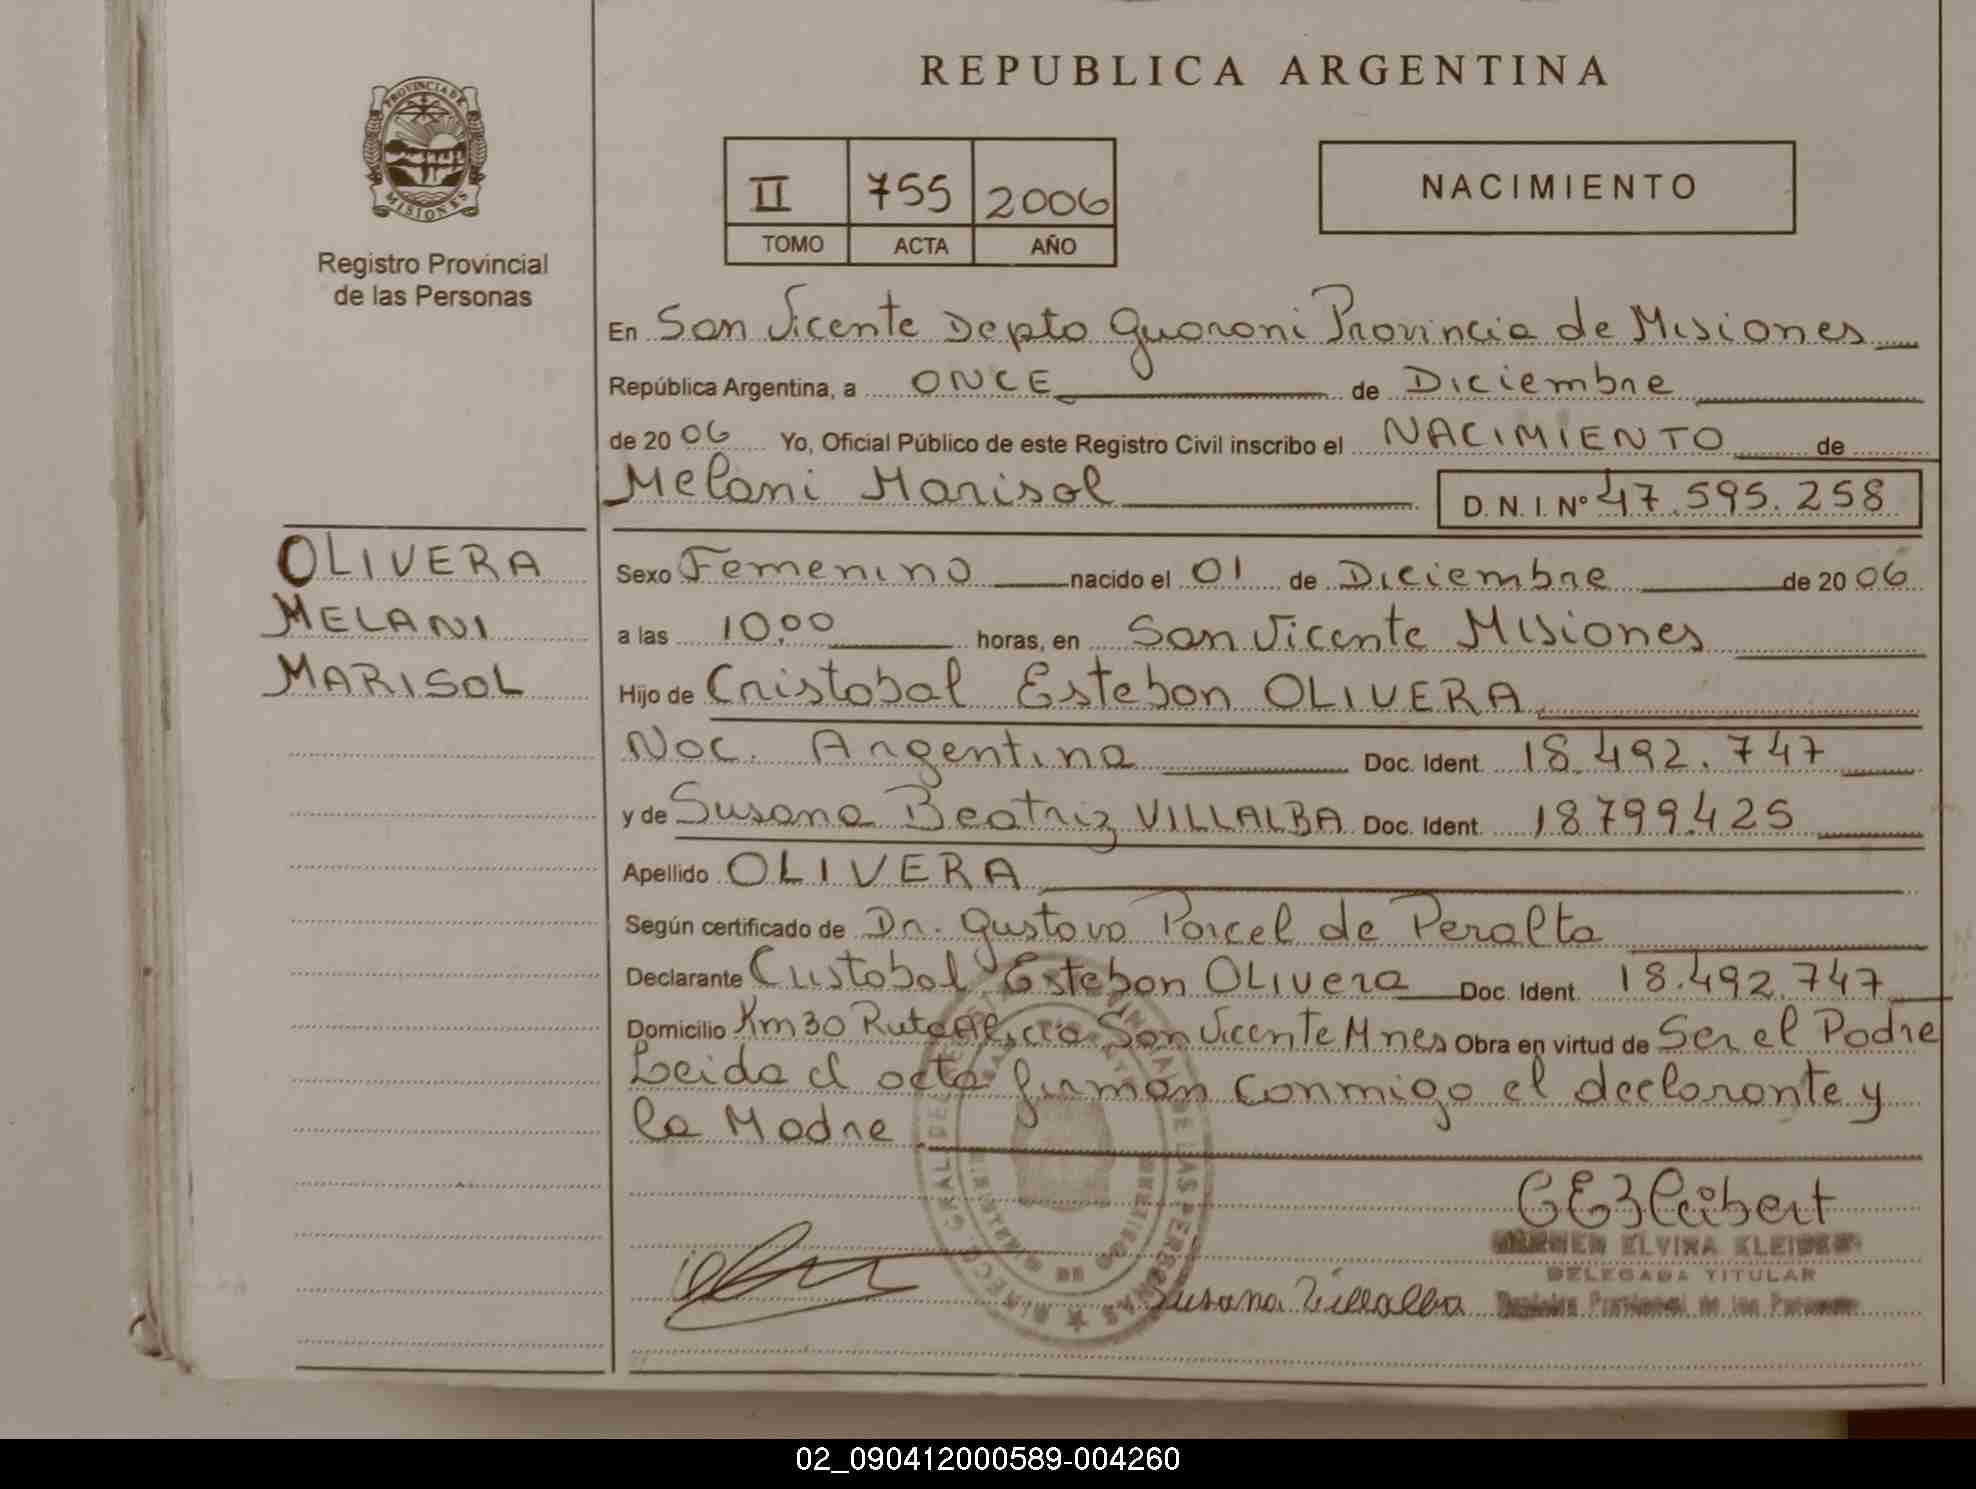 REPUBLICA ARGENTINA
PROVINCIA DE
MISIONES
Registro Provincial
de las Personas
II 755 2006
TOMO ACTA AÑO
NACIMIENTO
En San Vicente Depto Guarani Provincia de Misiones
República Argentina, a ONCE de Diciembre
de 20 06 Yo, Oficial Público de este Registro Civil inscribo el NACIMIENTO de
Melani Marisol D. N. I. Nº 47.595.258
OLIVERA
MELANI
MARISOL
Sexo Femenino nacido el 01 de Diciembre de 20 06
a las 10,00 horas, en San Vicente Misiones
Hijo de Cristobal Esteban OLIVERA
Nac. Argentina Doc. Ident. 18.492.747
y de Susana Beatriz VILLALBA Doc. Ident. 18799.425
Apellido OLIVERA
Según certificado de Dr. Gustavo Porcel de Peralta
Declarante Cristobal Esteban OLIVERA Doc. Ident. 18.492.747
Domicilio Km 30 Ruta Alicia San Vicente Mnes Obra en virtud de Ser el Padre
Leida el acta firman conmigo el declarante y
la Madre
Susana Villalba
ELVIRA
DELEGADA TITULAR
02_090412000589-004260